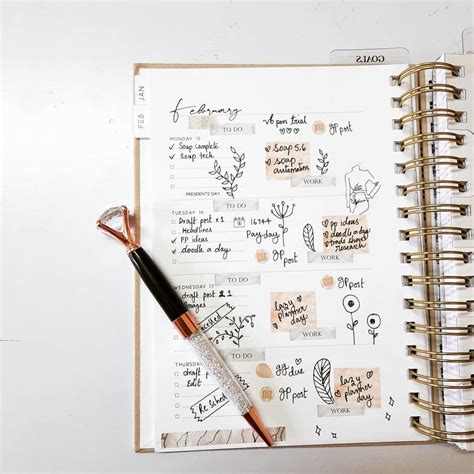 GOALS
JAN
FEB
February
TO DO
6 pen trial
post
MONDAY 15
✓ Soap complete
✓ Soap tech
Soap 5.6
soap
automation
WORK
PRESIDENTS' DAY
TO DO
TUESDAY 16
Draft post x1
Headlines
✓ PP ideas
✓ doodle a day
Payday
PP ideas
doodle a day
trade show
research
WORK
post
TO DO
WEDNESDAY 17
draft post x1
Images
lazy
planner
day
WORK
post
TO DO
THURSDAY
draft post
Edit
Re Sched
due
post
lazy
planner
day
WORK